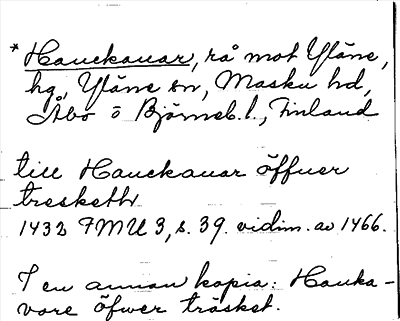 * Hauckauar, rå mot Yläne,
hg, Yläne sn, Masku hd,
Åbo o Björneb. l., Finland
till Hauckauar öffuer
treskethr
1432 FMU 3, s. 39. vidim. av 1466.
I en annan kopia: Hauka-
vore öfwer träsket.